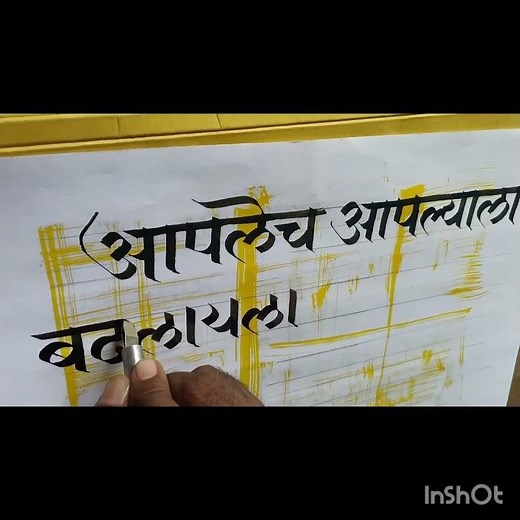 आपलेच आपल्याला
बदलायला
InShOt